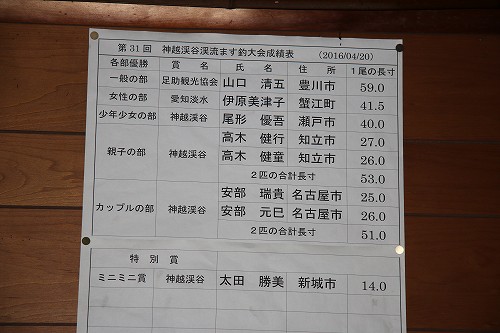 第31回 神越渓谷渓流ます釣大会成績表 (2016/04/20)
各部優勝 賞名 氏名 住所 1尾の長寸
一般の部 足助観光協会 山口 清五 豊川市 59.0
女性の部 愛知淡水 伊原美津子 蟹江町 41.5
少年少女の部 神越渓谷 尾形 優吾 瀬戸市 40.0
親子の部 神越渓谷 高木 健行 知立市 27.0
高木 健童 知立市 26.0
2匹の合計長寸 53.0
カップルの部 神越渓谷 安部 瑞貴 名古屋市 25.0
安部 元巳 名古屋市 26.0
2匹の合計長寸 51.0
特別賞
ミニミニ賞 神越渓谷 太田 勝美 新城市 14.0